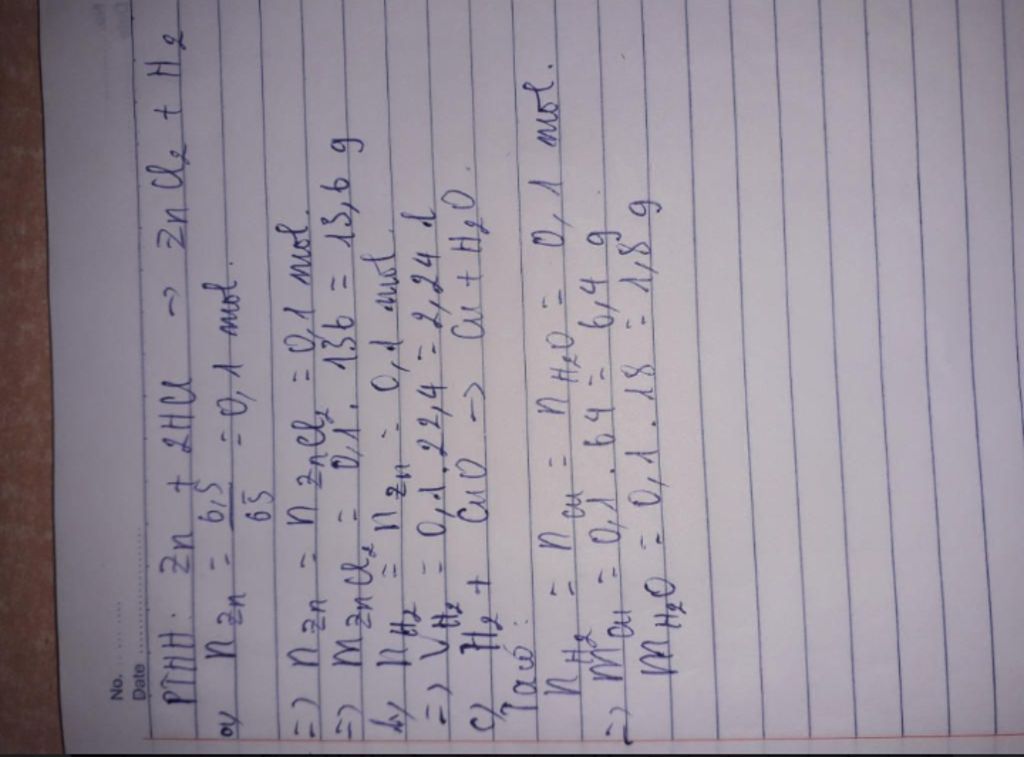 No. ... ....
Date ....................
PTHH: Zn + 2HCl -> ZnCl2 + H2
a/ nZn = 6,5/65 = 0,1 mol.
=) nZn = nZnCl2 = 0,1 mol.
=) mZnCl2 = 0,1 . 136 = 13,6 g
b/ nH2 = nZn = 0,1 mol.
=) VH2 = 0,1 . 22,4 = 2,24 l
c/ H2 + CuO -> Cu + H2O.
Ta có:
nH2 = nCu = nH2O = 0,1 mol.
=) mCu = 0,1 . 64 = 6,4 g
mH2O = 0,1 . 18 = 1,8 g